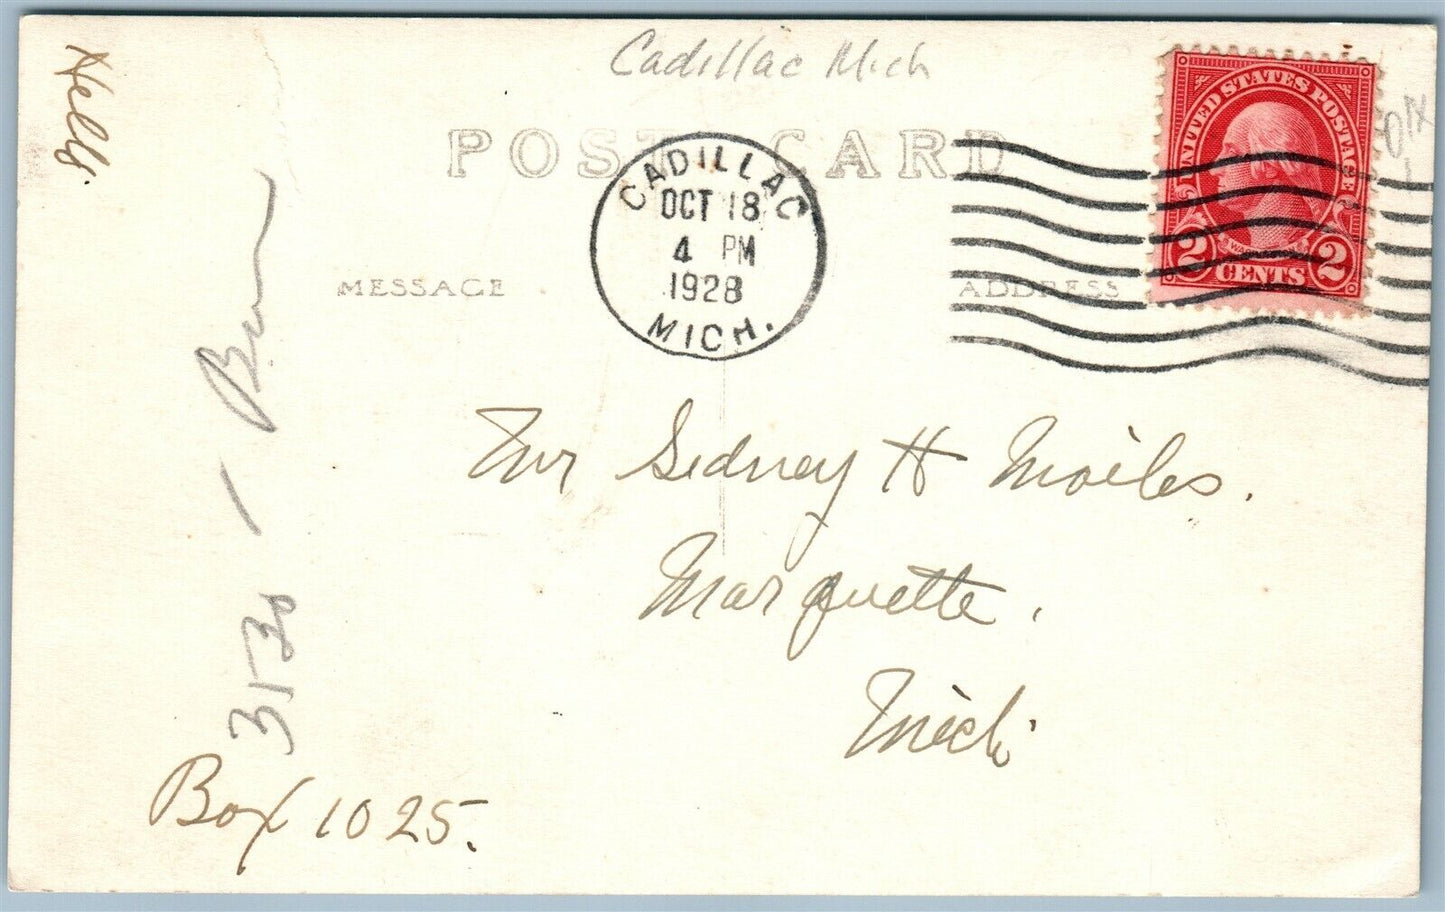 Cadillac Mich
POST CARD
UNITED STATES POSTAGE
WASHINGTON
2 CENTS 2
CADILLAC
OCT 18
4 PM
1928
MICH.
MESSAGE
ADDRESS
Mr Sidney H Moiles.
Marquette.
Mich.
Box 1025.
3130 -